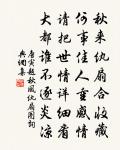 秋来纨扇合收藏
何事佳人重感伤
请把世情详细看
大都谁不逐炎凉
唐寅题秋风纨扇图诗
兴纲集